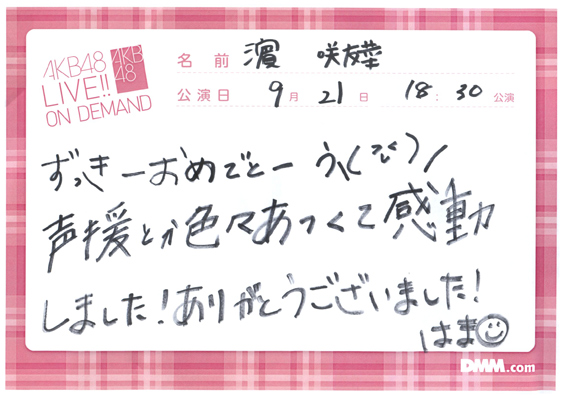 AKB48
LIVE!!
ON DEMAND
AKB
48
名前 濵 咲友菜
公演日 9月21日 18:30公演
ずっきーおめでとーう\(^^)/
声援とか色々あつくて感動
しました!ありがとうございました!
はま
DMM.com